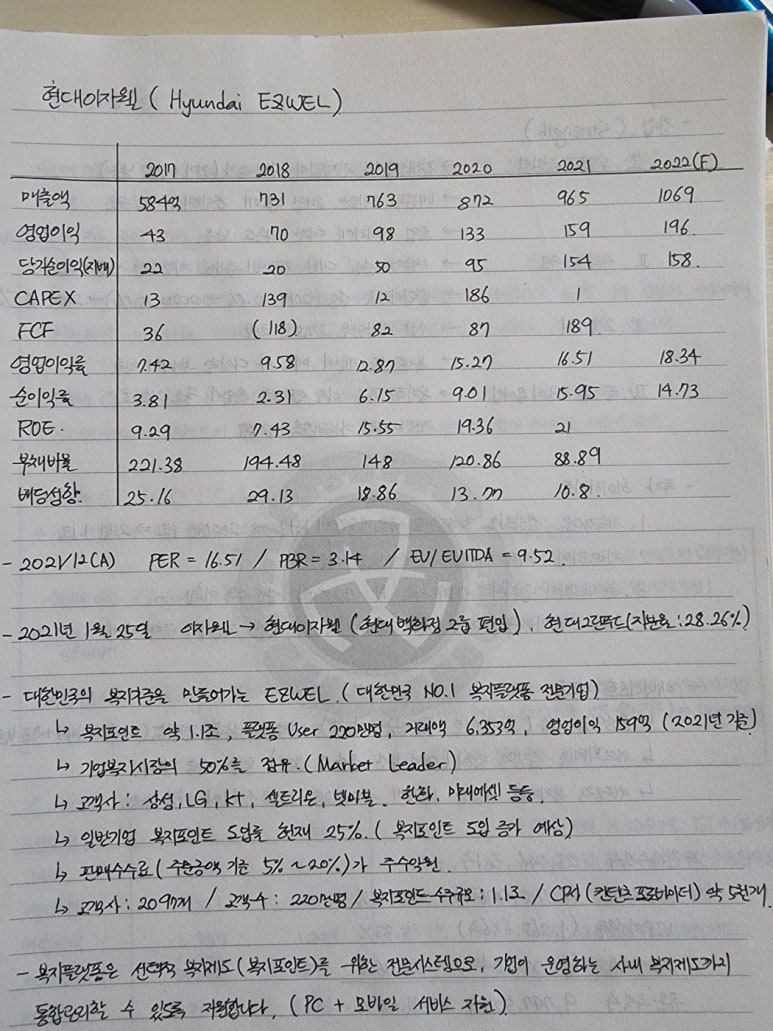 현대이지웰 ( Hyundai EZWEL )
2017 2018 2019 2020 2021 2022(F)
매출액 584억 731 763 872 965 1069
영업이익 43 70 98 133 159 196
당기순이익(지배) 22 20 50 95 154 158
CAPEX 13 139 12 186 1
FCF 36 (118) 82 87 189
영업이익률 7.42 9.58 12.87 15.27 16.51 18.34
순이익률 3.81 2.31 6.15 9.01 15.95 14.73
ROE. 9.29 7.43 15.55 19.36 21
부채비율 221.38 194.48 148 120.86 88.89
배당성향 25.16 29.13 18.86 13.77 10.8
- 2021/12(A) PER = 16.51 / PBR = 3.14 / EV/EVITDA = 9.52.
- 2021년 1월 25일 이지웰 → 현대이지웰 (현대백화점그룹 편입). 현대그린푸드(지분율 : 28.26%)
- 대한민국의 복지기준을 만들어가는 EZWEL. ( 대한민국 NO.1 복지플랫폼 전문기업)
↳ 복지포인트 약 1.1조, 플랫폼 User 220만명, 거래액 6,353억, 영업이익 159억 (2021년 기준)
↳ 기업복지시장의 50%를 점유. (Market Leader)
↳ 고객사 : 삼성, LG, kt, 셀트리온, 넷마블. 한화, 미래에셋 등등.
↳ 일반기업 복지포인트 도입률 현재 25%. ( 복지포인트 도입 증가 예상)
↳ 판매수수료 ( 주문금액 기준 5% ~ 20%)가 주수익원.
↳ 고객사 : 2097개 / 고객수 : 220만명 / 복지포인트 수주규모 : 1.1조 / CP사 (컨텐츠 프로바이더) 약 5천개.
- 복지플랫폼은 선택적 복지제도 (복지포인트)를 위한 전문시스템으로, 기업이 운영하는 사내 복지제도까지
통합관리할 수 있도록 지원합니다. (PC + 모바일 서비스 지원)